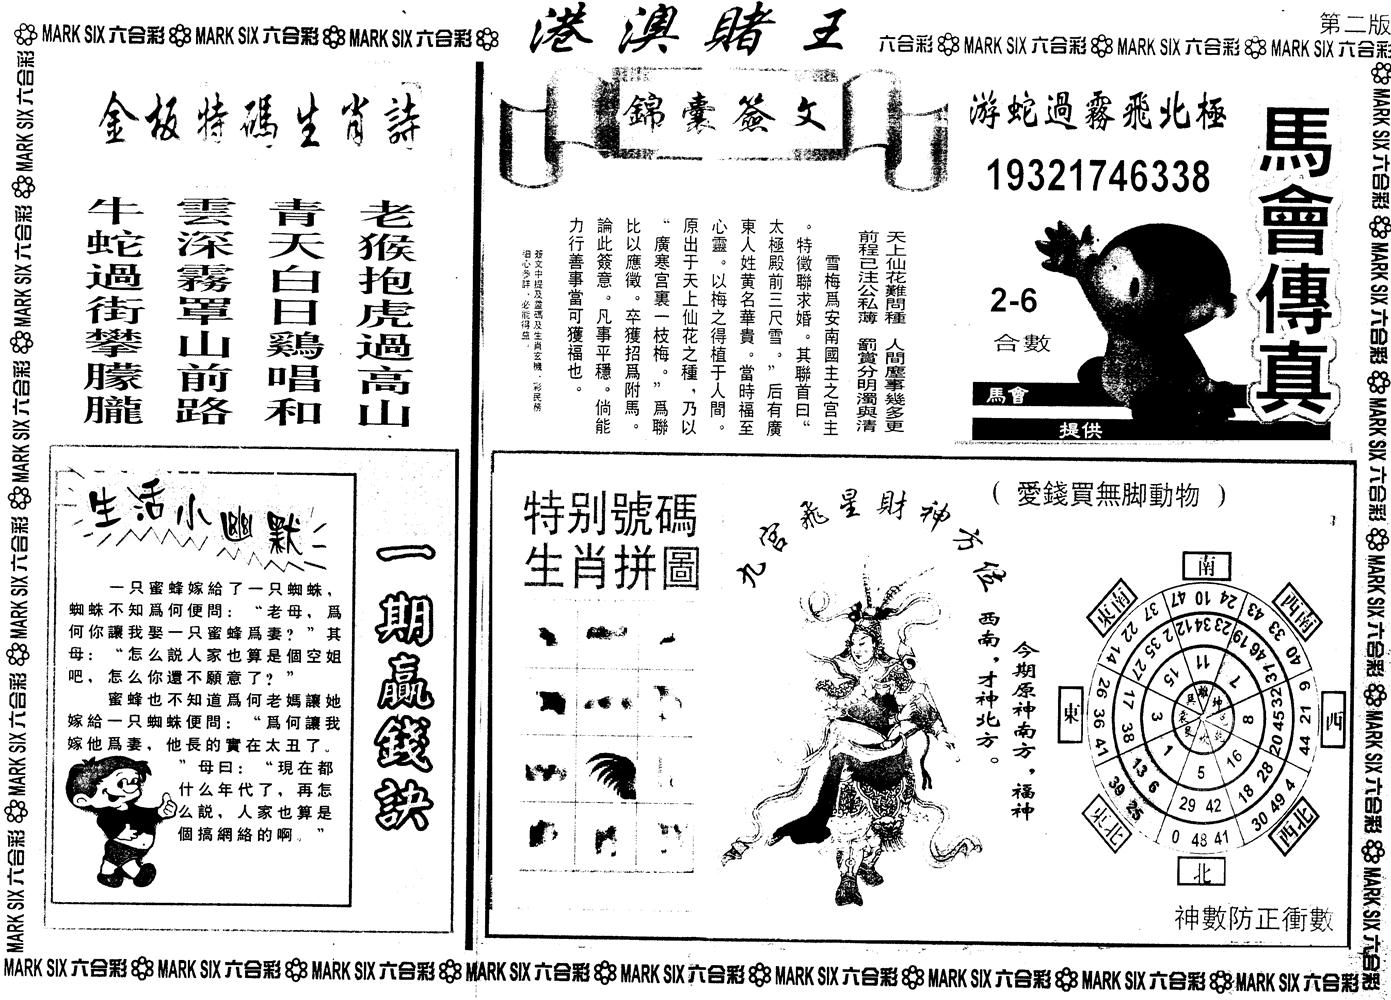 MARK SIX 六合彩 MARK SIX 六合彩 MARK SIX 六合彩
港澳賭王
六合彩 MARK SIX 六合彩 MARK SIX 六合彩 MARK SIX 六合彩
第二版
金板特碼生肖詩
老猴抱虎過高山
青天白日鷄唱和
雲深霧罩山前路
牛蛇過街攀朦朧
錦囊簽文
天上仙花難問種 人間塵事幾多更
前程已注公私薄 罰賞分明濁與清
雪梅爲安南國主之宮主
。特徵聯求婚。其聯首曰“
太極殿前三尺雪。”后有廣
東人姓黄名華貴。當時福至
心靈。以梅之得植于人間。
原出于天上仙花之種，乃以
“廣寒宫裏一枝梅。”爲聯
比以應徵。卒獲招爲附馬。
論此簽意。凡事平穩。倘能
力行善事當可獲福也。
簽文中提及靈碼及生肖玄機，彩民務
細心參詳，必能得益。
游蛇過霧飛北極
19321746338
2-6
合數
馬會
提供
馬會傳真
生活小幽默
一只蜜蜂嫁給了一只蜘蛛，
蜘蛛不知爲何便問：“老母，爲
何你讓我娶一只蜜蜂爲妻？”其
母：“怎么説人家也算是個空姐
吧，怎么你還不願意了？”
蜜蜂也不知道爲何老媽讓她
嫁給一只蜘蛛便問：“爲何讓我
嫁他爲妻，他長的實在太丑了。
”母曰：“現在都
什么年代了，再怎
么説，人家也算是
個搞網絡的啊。”
一期贏錢訣
特别號碼
生肖拼圖
九宮飛星財神方位
今期原神南方，福神
西南，才神北方。
（ 愛錢買無脚動物 ）
南
西南
西
西北
北
東北
東
東南
37 47 10 24 43 33 40 9 21 44 4 49 30 41 48 0 25 39 41 36 26 14 22
11
7
8
16
5
1
3
15
29 42
18 28
13 6
17 38
神數防正衝數
MARK SIX 六合彩 MARK SIX 六合彩 MARK SIX 六合彩 MARK SIX 六合彩 MARK SIX 六合彩 MARK SIX 六合彩 MARK SIX 六合彩 MARK SIX 六合彩 MARK SIX 六合彩